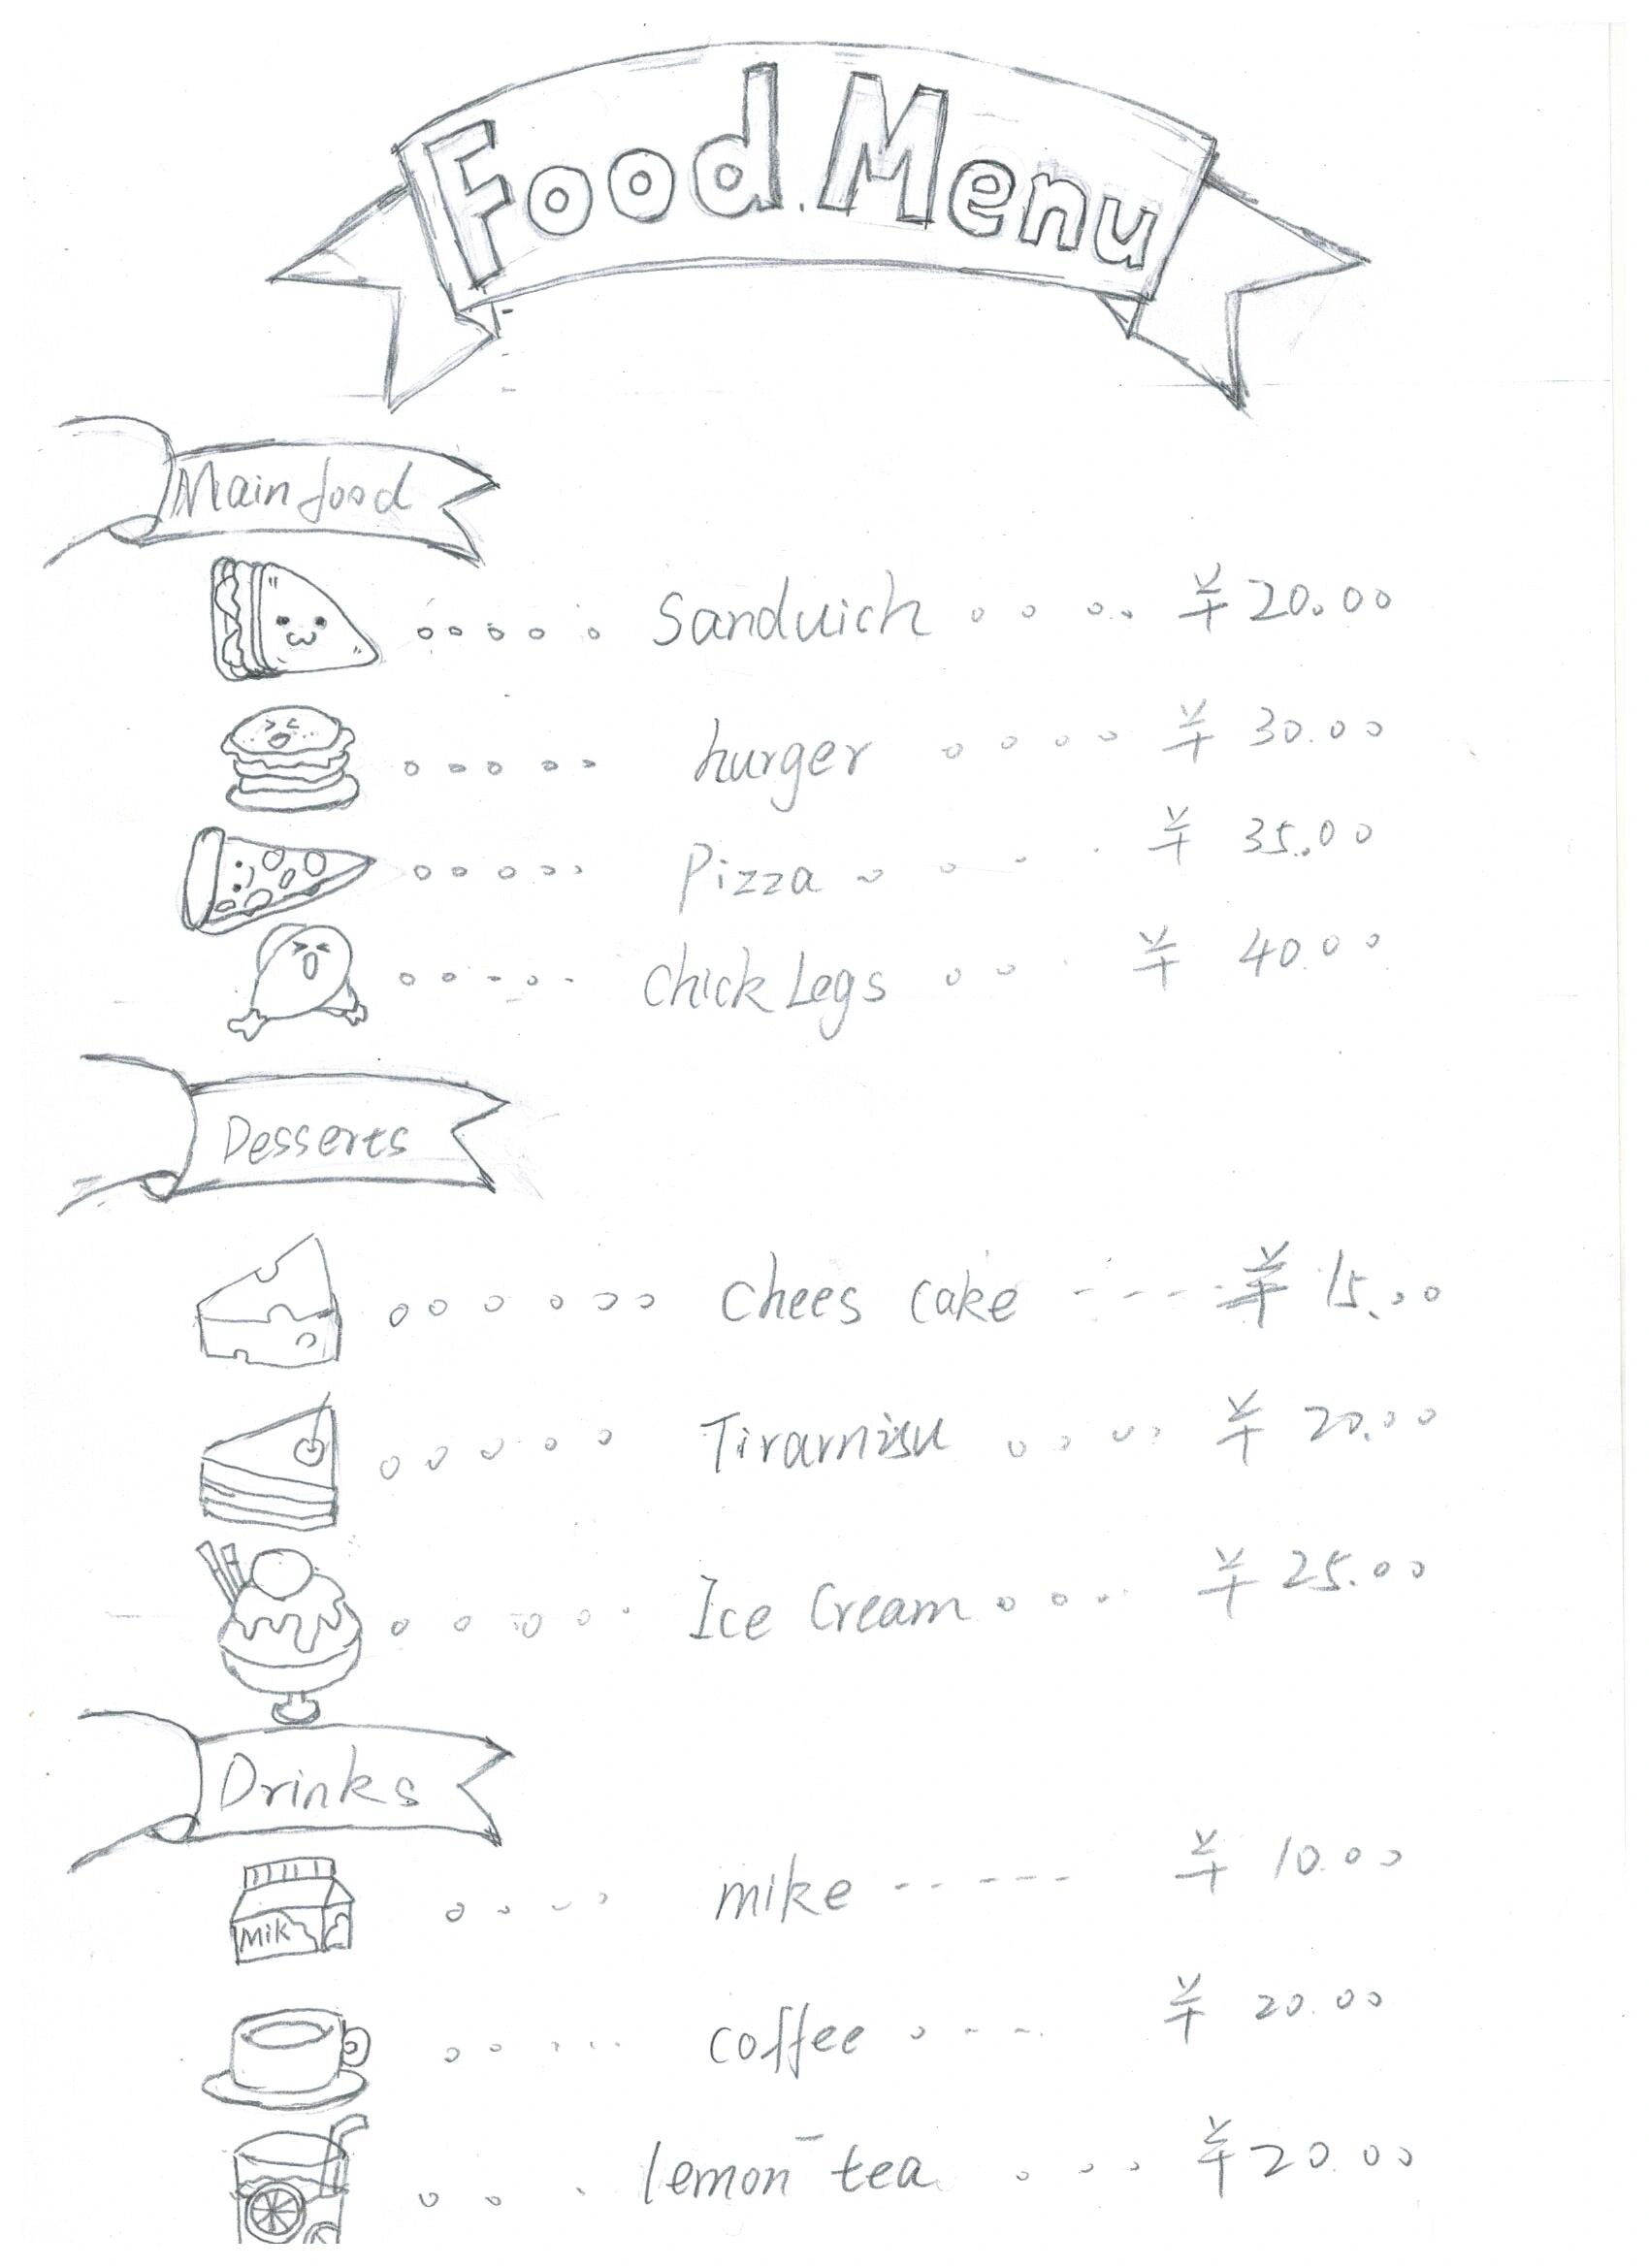 Food Menu
Main food
Sanduich ¥20.00
hurger ¥ 30.00
Pizza ¥ 35.00
chick Legs ¥ 40.00
Desserts
chees cake ¥ 15.00
Tiramisu ¥ 20.00
Ice Cream ¥ 25.00
Drinks
Mik
mike ¥ 10.00
coffee ¥ 20.00
lemon tea ¥20.00